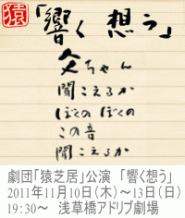 猿
「響く 想う」
父ちゃん
聞こえるか
ぼくの ぼくの
この音
聞こえるか
劇団「猿芝居」公演 「響く想う」
2011年11月10日(木)～13日(日)
19:30～ 浅草橋アドリブ劇場